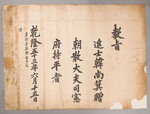 敎旨
進士韓尚箕贈
朝散大夫司憲
府持平者
乾隆五十三年六月十五日